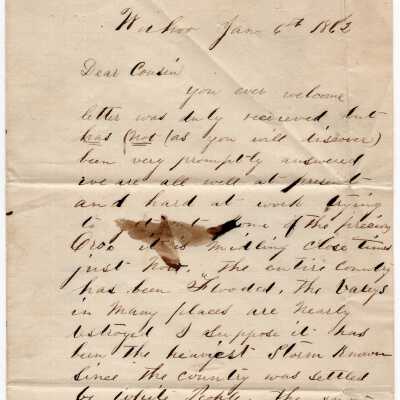 Jany 6th 1862
Dear Cousin
you ever welcome
letter was duly received but
has (not (as you will discover)
been very promptly answered
we are all well at present
and hard at work trying
to some of the precious
Oro it is midling close times
just now. The entire Country
has been Flooded, the Valeys
in many places are nearly
destroyed I suppose it has
been the heavyest Storm Known
Since the country was settled
by White People the